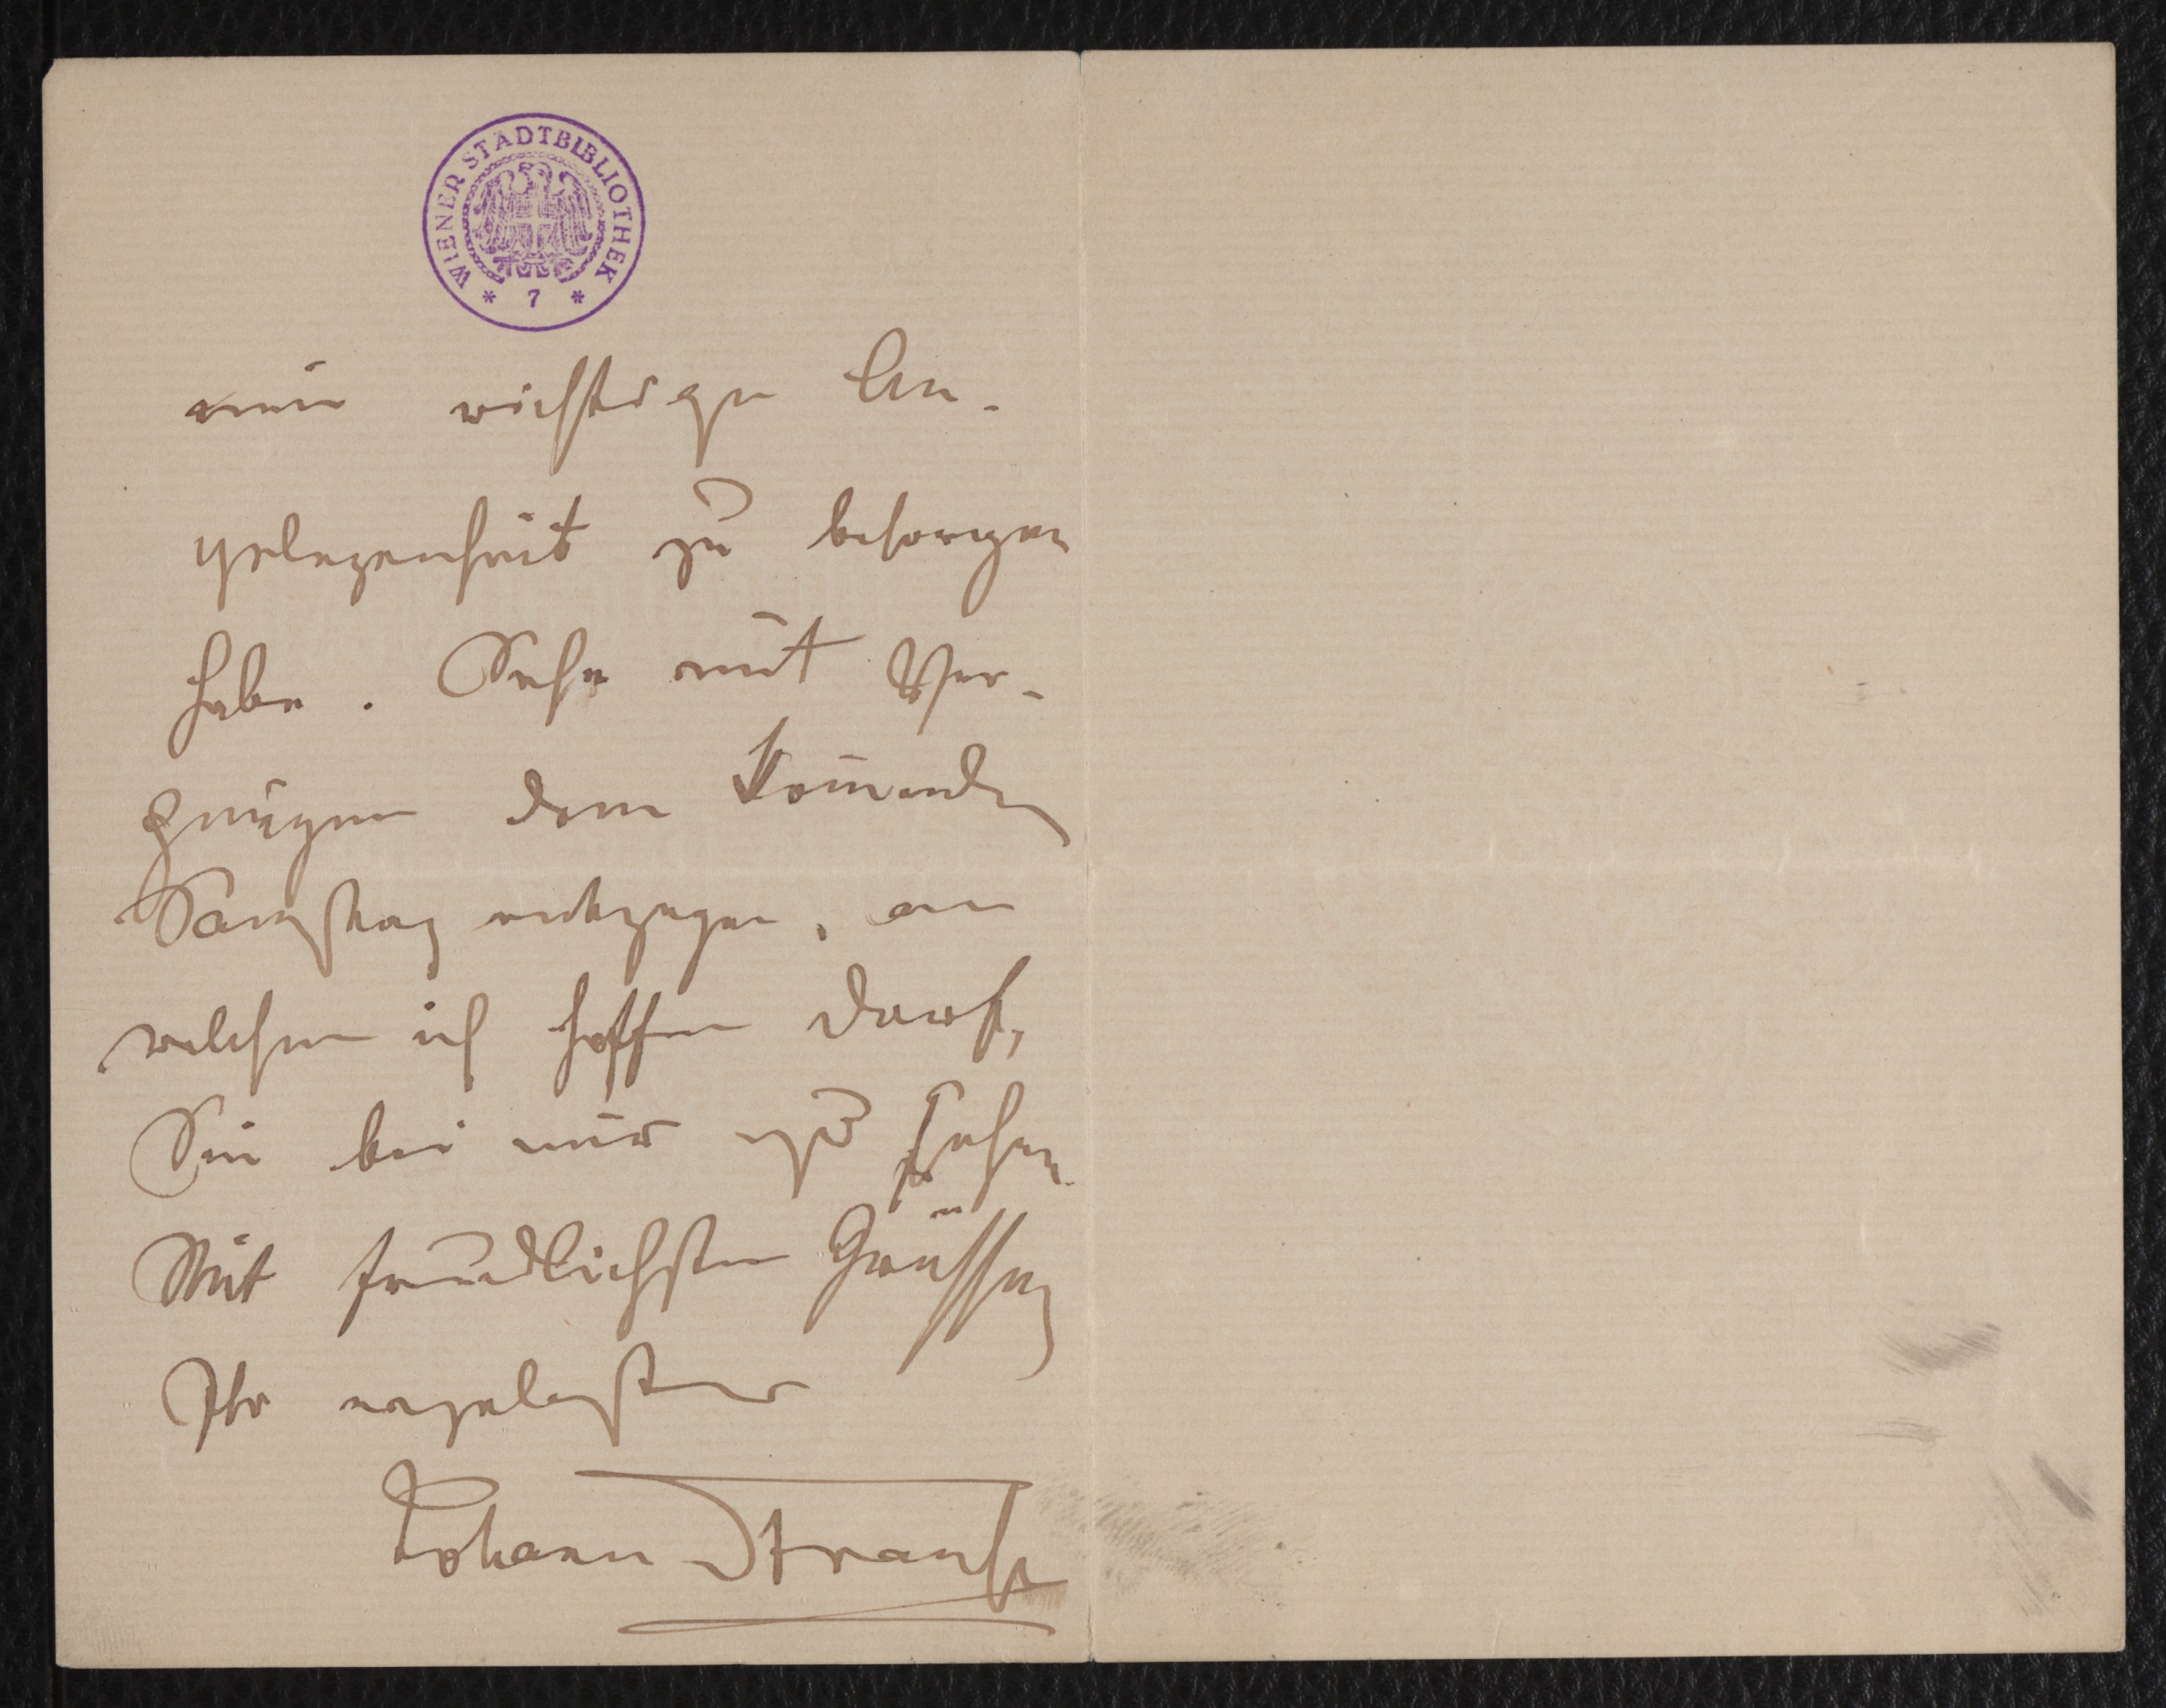 WIENER STADTBIBLIOTHEK
* 7 *
eine wichtige An-
gelegenheit zu besorgen
habe. Sehe mit Ver-
gnügen dem kom̅enden
Samstag entgegen, an
welchem ich hoffen darf,
Sie bei mir zu sehen.
Mit freundlichsten Grüssen
Ihr ergebenster
Johann Strauss